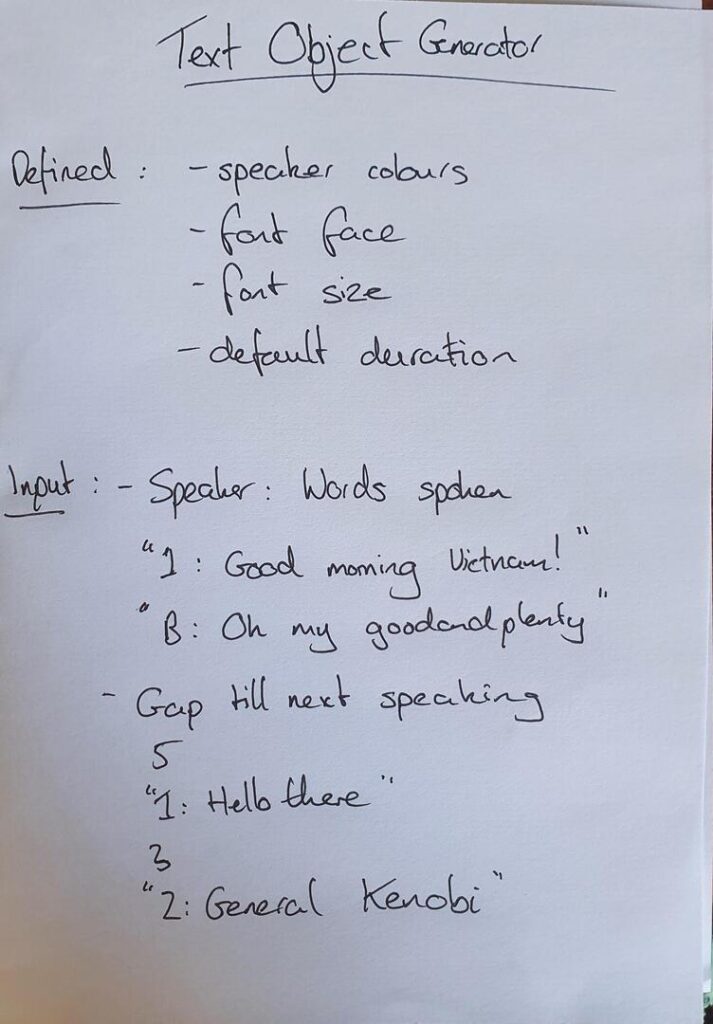 Text Object Generator
Defined : - speaker colours
- font face
- font size
- default duration
Input : - Speaker : Words spoken
"1 : Good morning Vietnam!"
"B : Oh my goodandplenty"
- Gap till next speaking
5
"1 : Hello there"
3
"2 : General Kenobi"